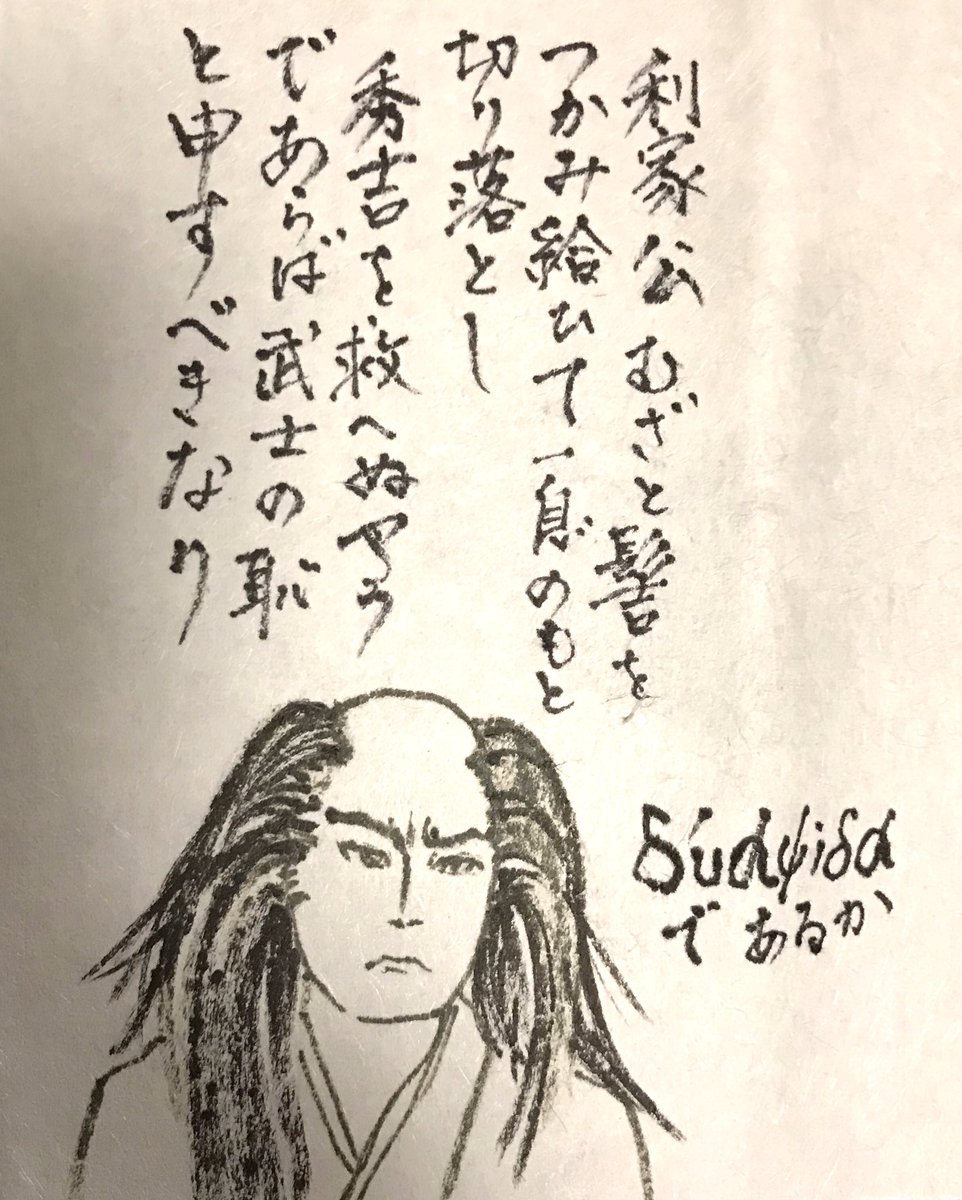 利家公 むざと髻を
つかみ給ひて一息のもと
切り落とし
秀吉を救へぬやう
であらば武士の恥
と申すべきなり
であるか